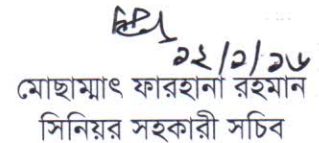 ১২/১/১৬
মোছাম্মাৎ ফারহানা রহমান
সিনিয়র সহকারী সচিব